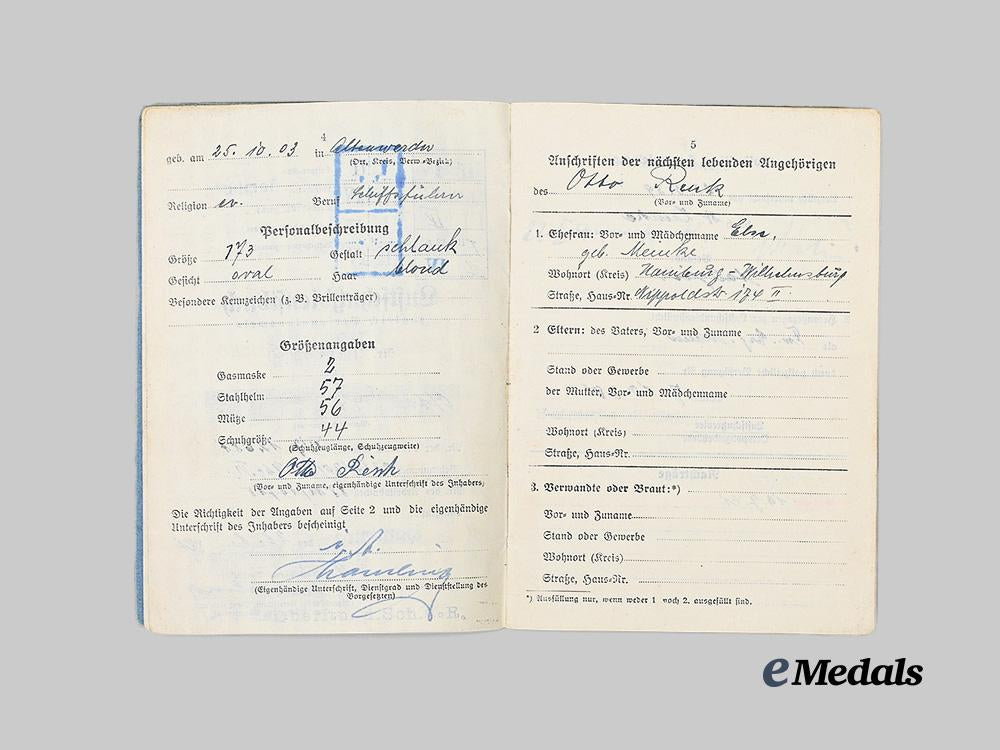 4
geb. am 25. 10. 03 in Altenwerder
(Ort, Kreis, Verw.-Bezirk)
Religion ev. Beruf Schiffsführer
Personalbeschreibung
Größe 173 Gestalt schlank
Gesicht oval Haar blond
Besondere Kennzeichen (z. B. Brillenträger)
Größenangaben
Gasmaske 2
Stahlhelm 57
Mütze 56
Schuhgröße 44
(Schuhzeuglänge, Schuhzeugweite)
Otto
(Vor- und Zuname, eigenhändige Unterschrift des Inhabers)
Die Richtigkeit der Angaben auf Seite 2 und die eigenhändige
Unterschrift des Inhabers bescheinigt
i. A.
(Eigenhändige Unterschrift, Dienstgrad und Dienststellung des
Vorgesetzten)
5
Anschriften der nächsten lebenden Angehörigen
des Otto
(Vor- und Zuname)
1. Ehefrau: Vor- und Mädchenname
geb. Meinke
Wohnort (Kreis) Hamburg-Wilhelmsburg
Straße, Haus-Nr. 174 II.
2 Eltern: des Vaters, Vor- und Zuname
Stand oder Gewerbe
der Mutter, Vor- und Mädchenname
Wohnort (Kreis)
Straße, Haus-Nr.
3. Verwandte oder Braut:*)
Vor- und Zuname
Stand oder Gewerbe
Wohnort (Kreis)
Straße, Haus-Nr.
*) Ausfüllung nur, wenn weder 1 noch 2. ausgefüllt sind.
eMedals